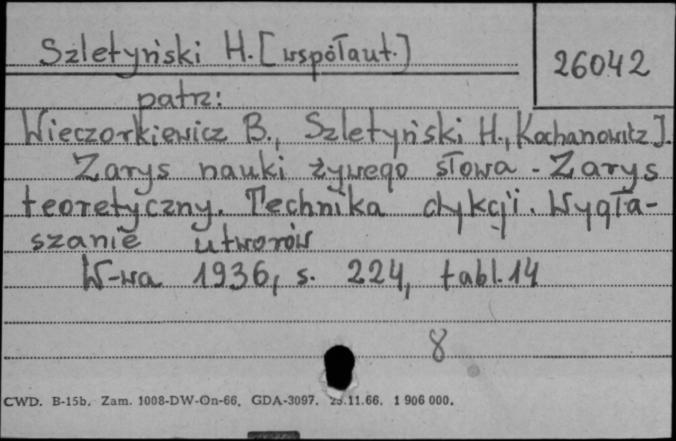 Szletyński H. [współaut.]
26042
patrz:
Wieczorkiewicz B., Szletyński H., Kochanowitz J.
Zarys nauki żywego słowa - Zarys
teoretyczny. Technika dykcji. Wygła-
szanie utworów
W-wa 1936, s. 224, tabl. 14
8
CWD. B-15b. Zam. 1008-DW-On-66. GDA-3097. 25.11.66. 1 906 000.